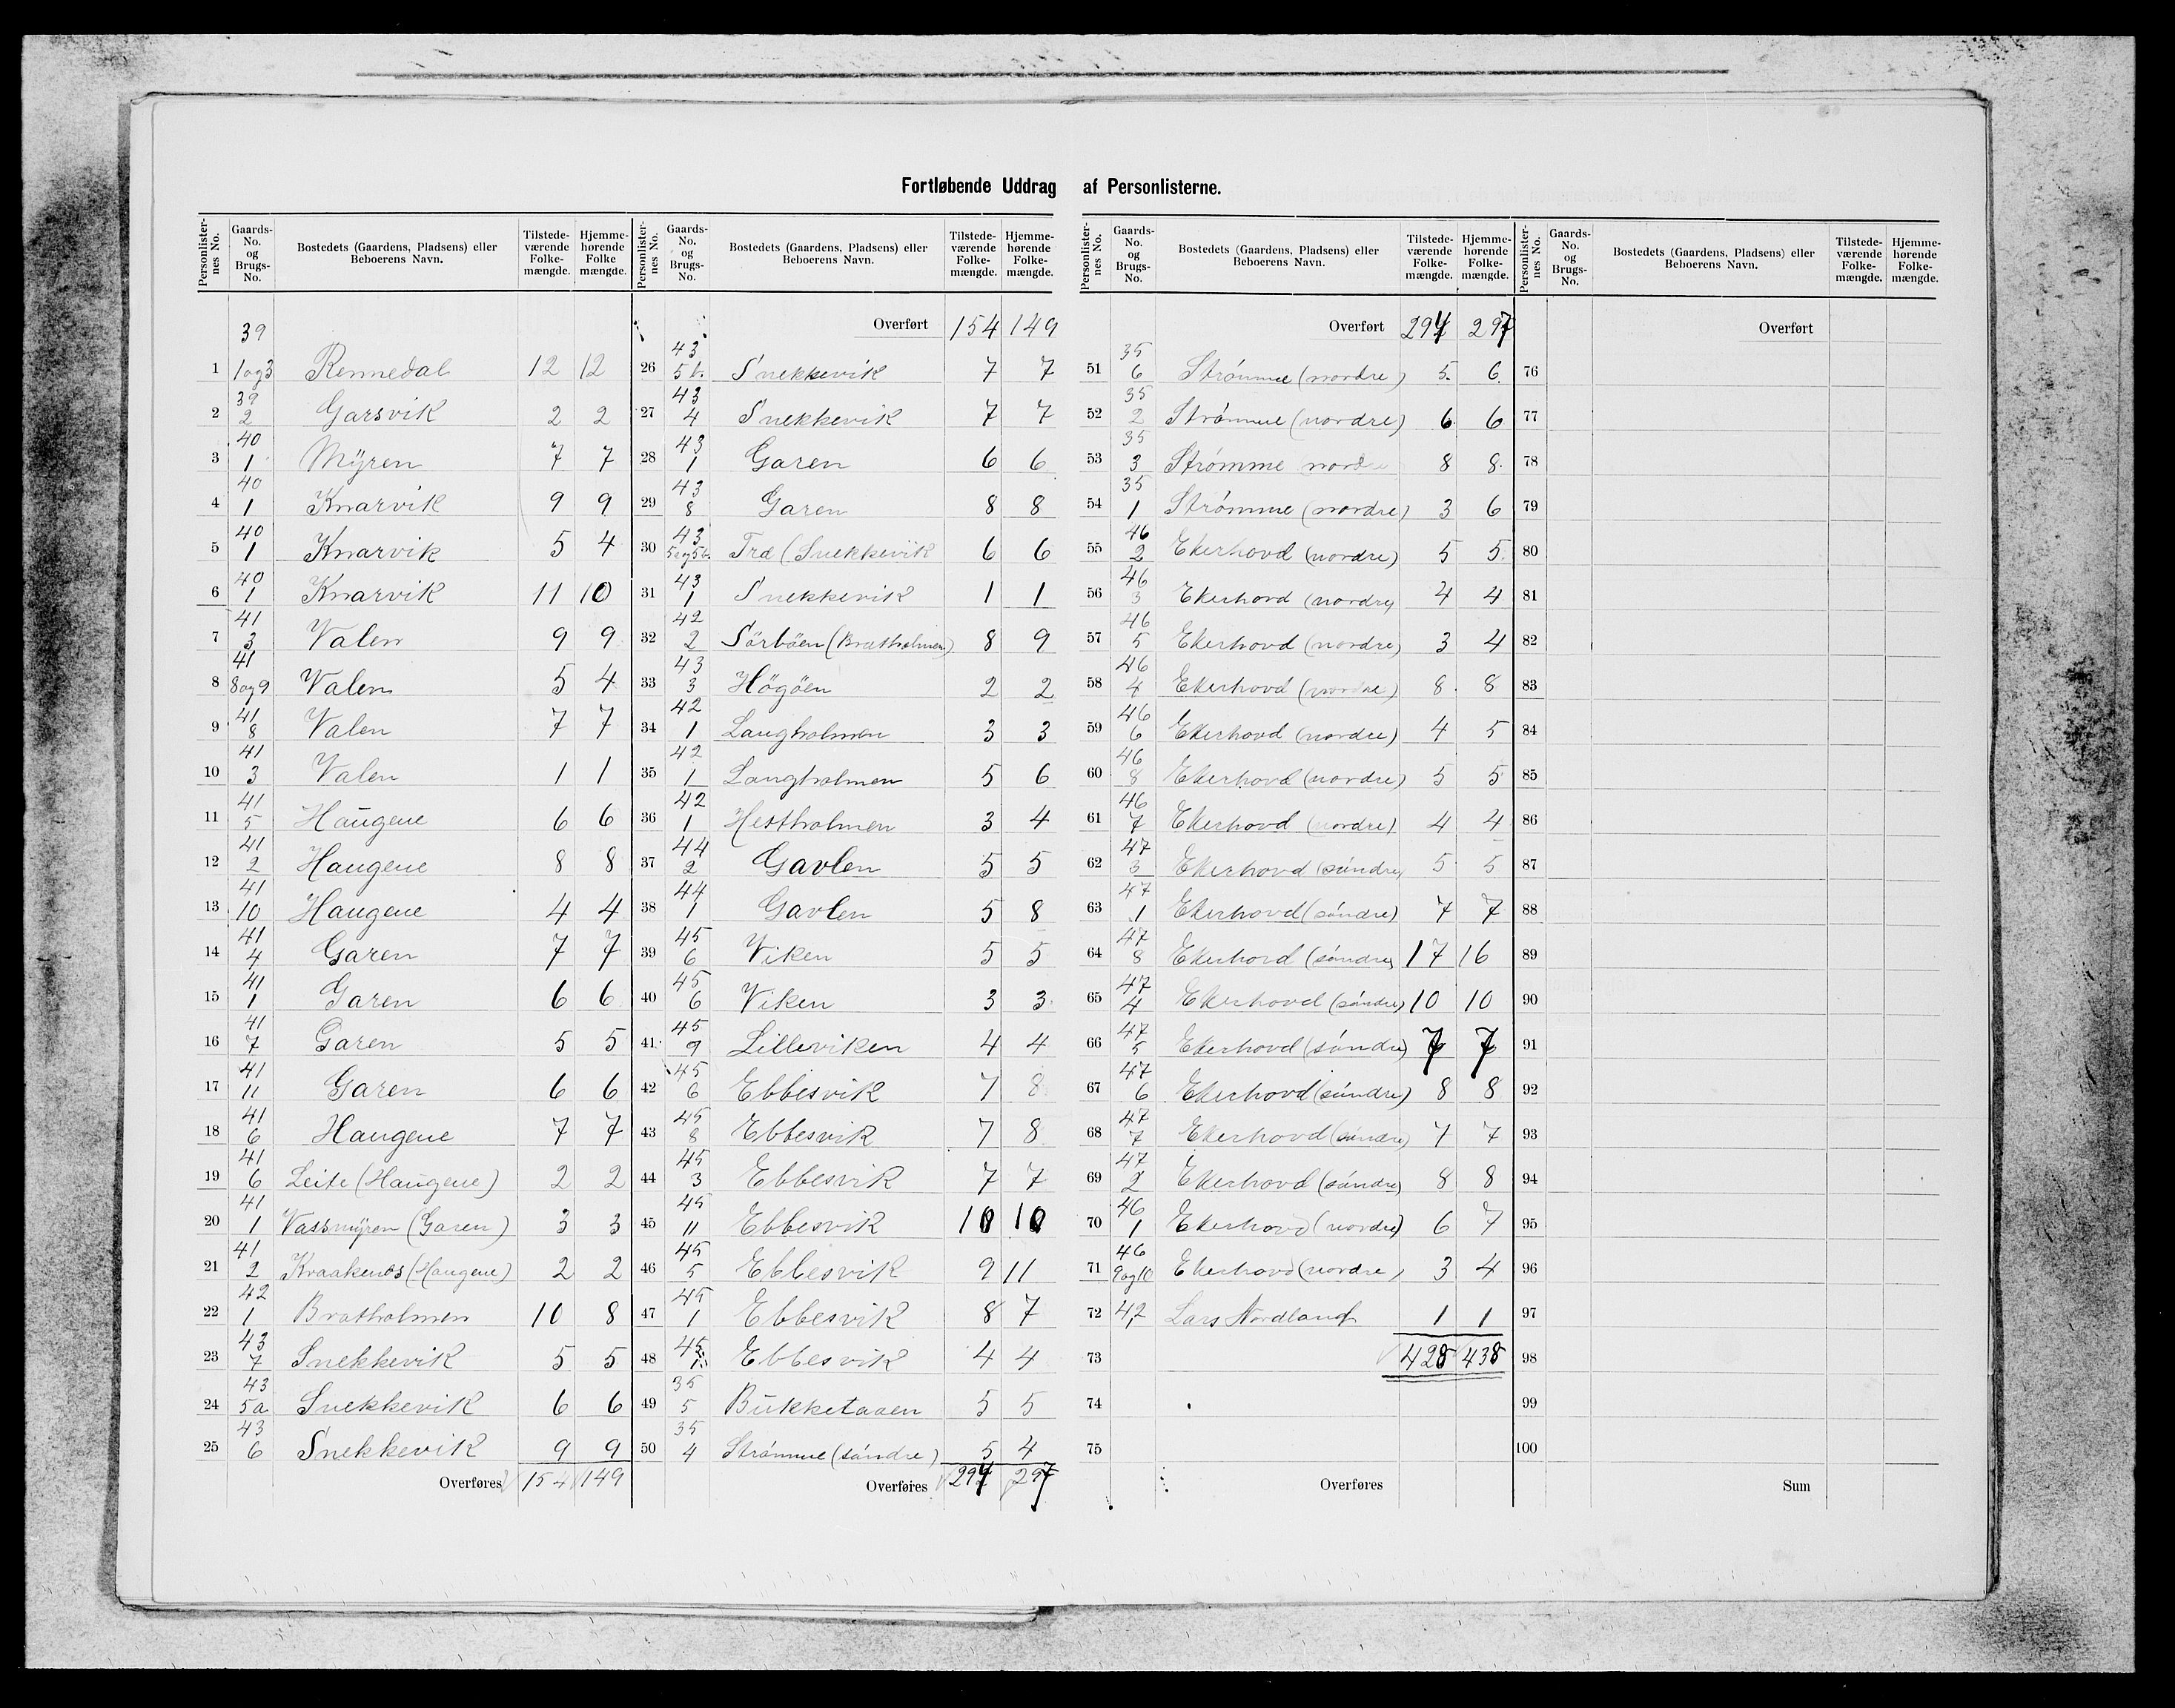 Fortløbende Uddrag af Personlisterne.
Personlister-nes No. Gaards-No. og Brugs-No. Bostedets (Gaardens, Pladsens) eller Beboerens Navn. Tilstede-værende Folke-mængde. Hjemme-hørende Folke mængde.
1 39 1og3 Rennedal 12 12
2 39 2 Garsvik 2 2
3 40 1 Mÿren 7 7
4 40 1 Knarvik 9 9
5 40 1 Knarvik 5 4
6 40 1 Knarvik 11 10
7 41 3 Valen 9 9
8 41 8og9 Valen 5 4
9 41 8 Valen 7 7
10 41 3 Valen 1 1
11 41 5 Haugene 6 6
12 41 2 Haugene 8 8
13 41 10 Haugene 4 4
14 41 4 Garen 7 7
15 41 1 Garen 6 6
16 41 7 Garen 5 5
17 41 11 Garen 6 6
18 41 6 Haugene 7 7
19 41 6 Leite (Haugene) 2 2
20 41 1 Vassmÿren (Garen) 3 3
21 41 2 Kraakenes (Haugene) 2 2
22 42 1 Bratholmen 10 8
23 43 7 Snekkevik 5 5
24 43 5a Snekkevik 6 6
25 43 6 Snekkevik 9 9
Overføres 154 149
Personlister-nes No. Gaards-No. og Brugs-No. Bostedets (Gaardens, Pladsens) eller Beboerens Navn. Tilstede-værende Folke-mængde. Hjemme-hørende Folke-mængde.
Overført 154 149
26 43 5b. Snekkevik 7 7
27 43 4 Snekkevik 7 7
28 43 1 Garen 6 6
29 43 8 Garen 8 8
30 43 5aog5b. Træ (Snekkevik 6 6
31 43 1 Snekkevik 1 1
32 42 2 Sörböen (Bratholmen) 8 9
33 43 3 Högöen 2 2
34 42 1 Langholmen 3 3
35 42 1 Langholmen 5 6
36 42 1 Hestholmen 3 4
37 44 2 Gavlen 5 5
38 44 1 Gavlen 5 8
39 45 6 Viken 5 5
40 45 6 Viken 3 3
41 45 9 Lilleviken 4 4
42 45 6 Ebbesvik 7 8
43 45 8 Ebbesvik 7 8
44 45 3 Ebbesvik 7 7
45 45 11 Ebbesvik 10 10
46 45 5 Ebbesvik 9 11
47 45 1 Ebbesvik 8 7
48 45 1 Ebbesvik 4 4
49 35 5 Bukketaaen 5 5
50 35 4 Strømme (søndre) 5 4
Overføres 294 297
Personlister-nes No. Gaards-No. og Brugs-No. Bostedets (Gaardens, Pladsens) eller Beboerens Navn. Tilstede-værende Folke-mængde. Hjemme-hørende Folke-mængde.
Overført 294 297
51 35 6 Strømme (nordre) 5. 6.
52 35 2 Strømme (nordre) 6 6
53 35 3 Strømme nord 8 8.
54 35 1 Strømme (nordre) 3 6
55 46 2 Ekerhovd (nordre) 5 5.
56 46 3 Ekerhovd (nordre) 4 4
57 46 5 Ekerhovd (nordre) 3 4
58 46 4 Ekerhovd (nordre) 8. 8
59 46 6 Ekerhovd (nordre) 4 5
60 46 8 Ekerhovd (nordre) 5 5
61 46 7 Ekerhovd (nordre) 4 4
62 47 3 Ekerhovd (søndre) 5 5
63 47 1 Ekerhovd (søndre) 7 7
64 47 8 Ekerhovd (søndre) 17 16
65 47 4 Ekerhovd (søndre) 10 10
66 47 5 Ekerhovd (søndre) 7 7
67 47 6 Ekerhovd (søndre) 8 8
68 47 7 Ekerhovd (søndre) 7 7
69 47 2 Ekerhovd (søndre) 8 8
70 46 1 Ekerhovd (nordre) 6 7
71 46 9og10 Ekerhovd (nordre) 3 4
72 42 Lars Nordland 1 1
73 428 438
74
75
Overføres
Personlister-nes No. Gaards-No. og Brugs-No. Bostedets (Gaardens, Pladsens) eller Beboerens Navn. Tilstede-værende Folke-mængde. Hjemme-hørende Folke-mængde.
Overført
76
77
78
79
80
81
82
83
84
85
86
87
88
89
90
91
92
93
94
95
96
97
98
99
100
Sum